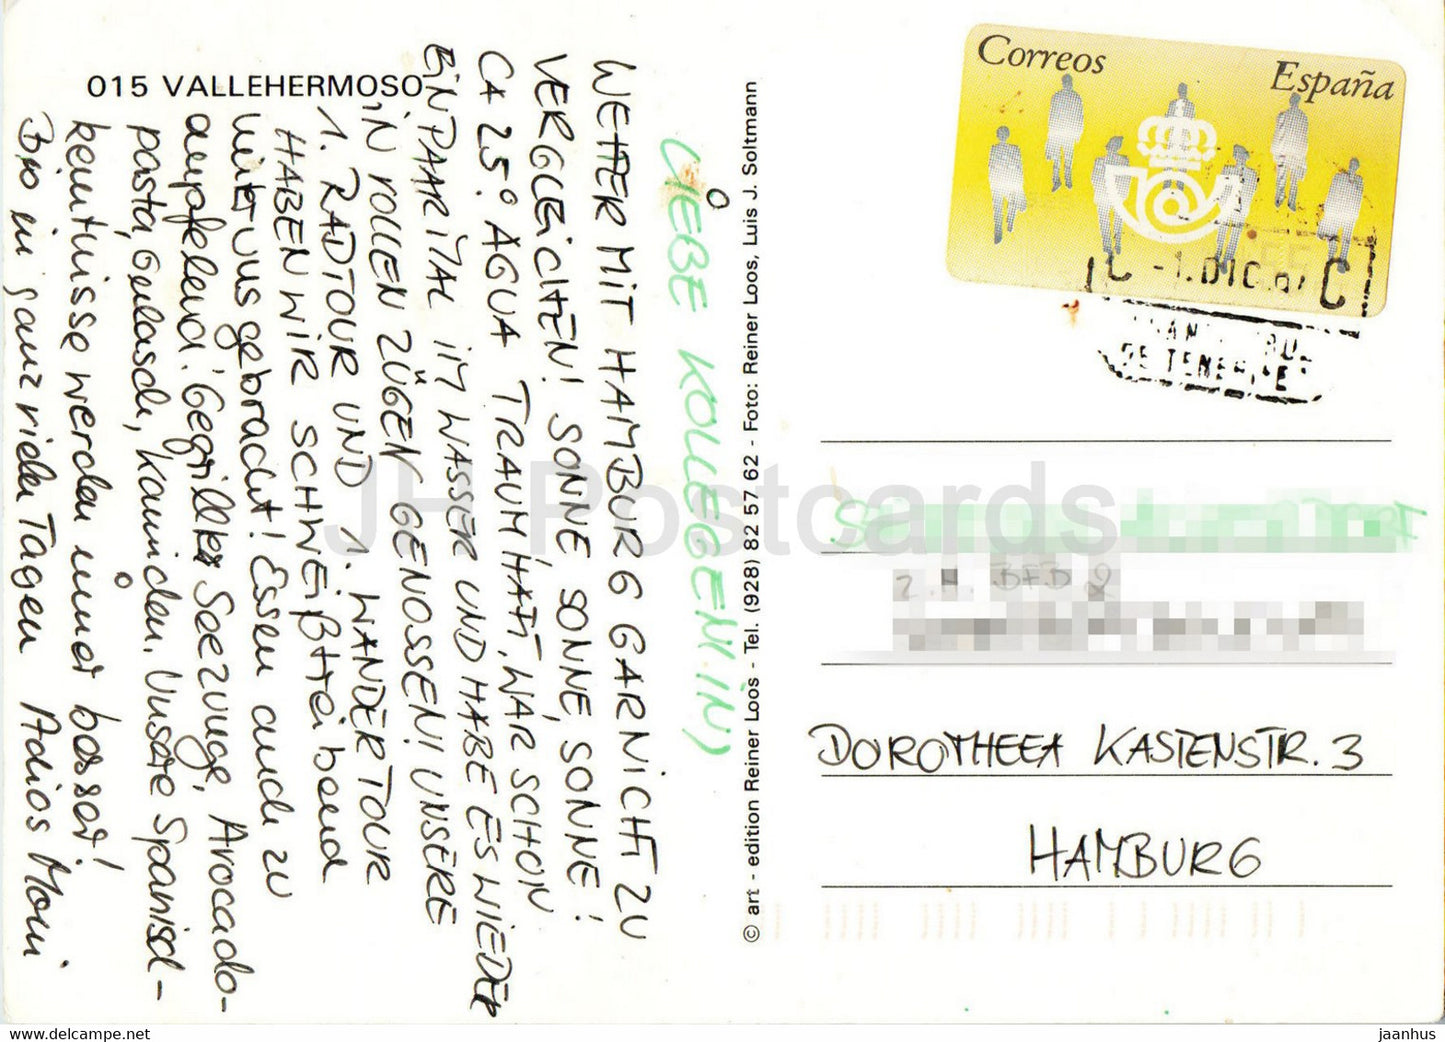 015 VALLEHERMOSO
LIEBE KOLLEGEN(IN)
WETTER MIT HAMBURG GAR NICHT ZU
VERGLEICHEN! SONNE, SONNE, SONNE!
CA 25° AGUA TRAUMHAFT, WAR SCHON
EIN PAAR MAL IM WASSER UND HABE ES WIEDER
IN VOLLEN ZÜGEN GENOSSEN! UNSERE
1. RADTOUR UND 1. WANDERTOUR
HABEN WIR SCHWEIßtreibend
hinter uns gebracht! Essen auch zu
empfehlend: Gegrillte Seezunge, Avocado-
pasta, Gulasch, Kaninchen. Unsere Spanisch-
kenntnisse werden immer besser!
Bis in ganz vielen Tagen Adios Moni
© art - edition Reiner Loos - Tel. (928) 82 57 62 - Foto: Reiner Loos, Luis J. Soltmann
Correos España
-1.DIC.
DE TENERIFE
Z.H. BFB 2
DOROTHEEA KASTENSTR. 3
HAMBURG
JH Postcards
www.delcampe.net
jaanhus